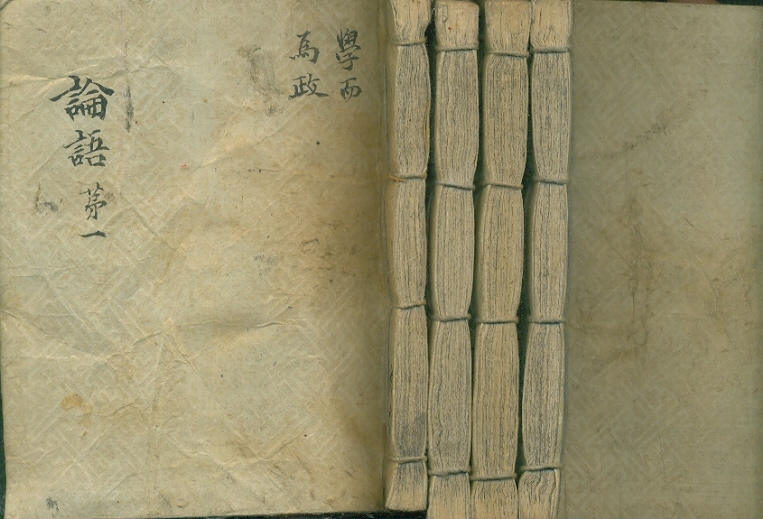 學而
爲政
論語 苐一